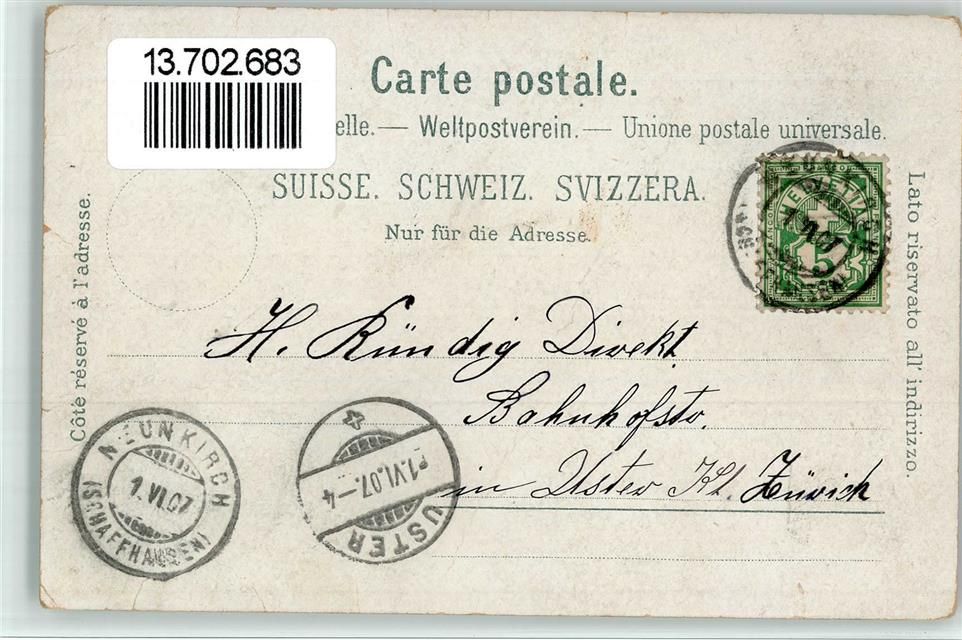 13.702.683
Carte postale.
elle. — Weltpostverein. — Unione postale universale.
SUISSE. SCHWEIZ. SVIZZERA.
Nur für die Adresse.
Côté réservé à l'adresse.
Lato riservato all' indirizzo.
HELVETIA
5
H. Kündig Direkt.
Bahnhofstr.
in Uster Kt. Zürich
NEUNKIRCH
1.VI.07
(SCHAFFHAUSEN)
1.VI.07.–4
USTER